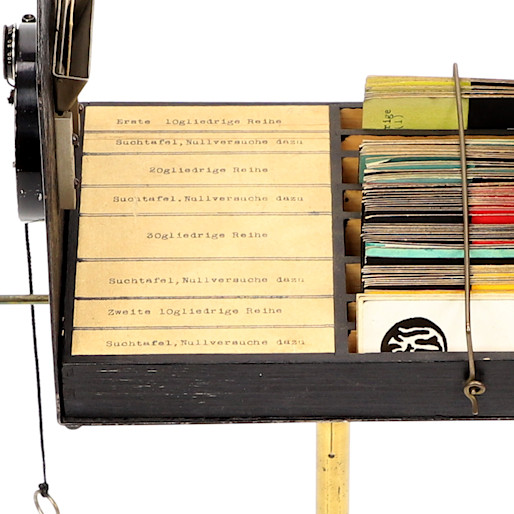 Erste 10gliedrige Reihe
Suchtafel,Nullversuche dazu
20gliedrige Reihe
Suchtafel,Nullversuche dazu
30gliedrige Reihe
Suchtafel,Nullversuche dazu
Zweite 10gliedrige Reihe
Suchtafel,Nullversuche dazu